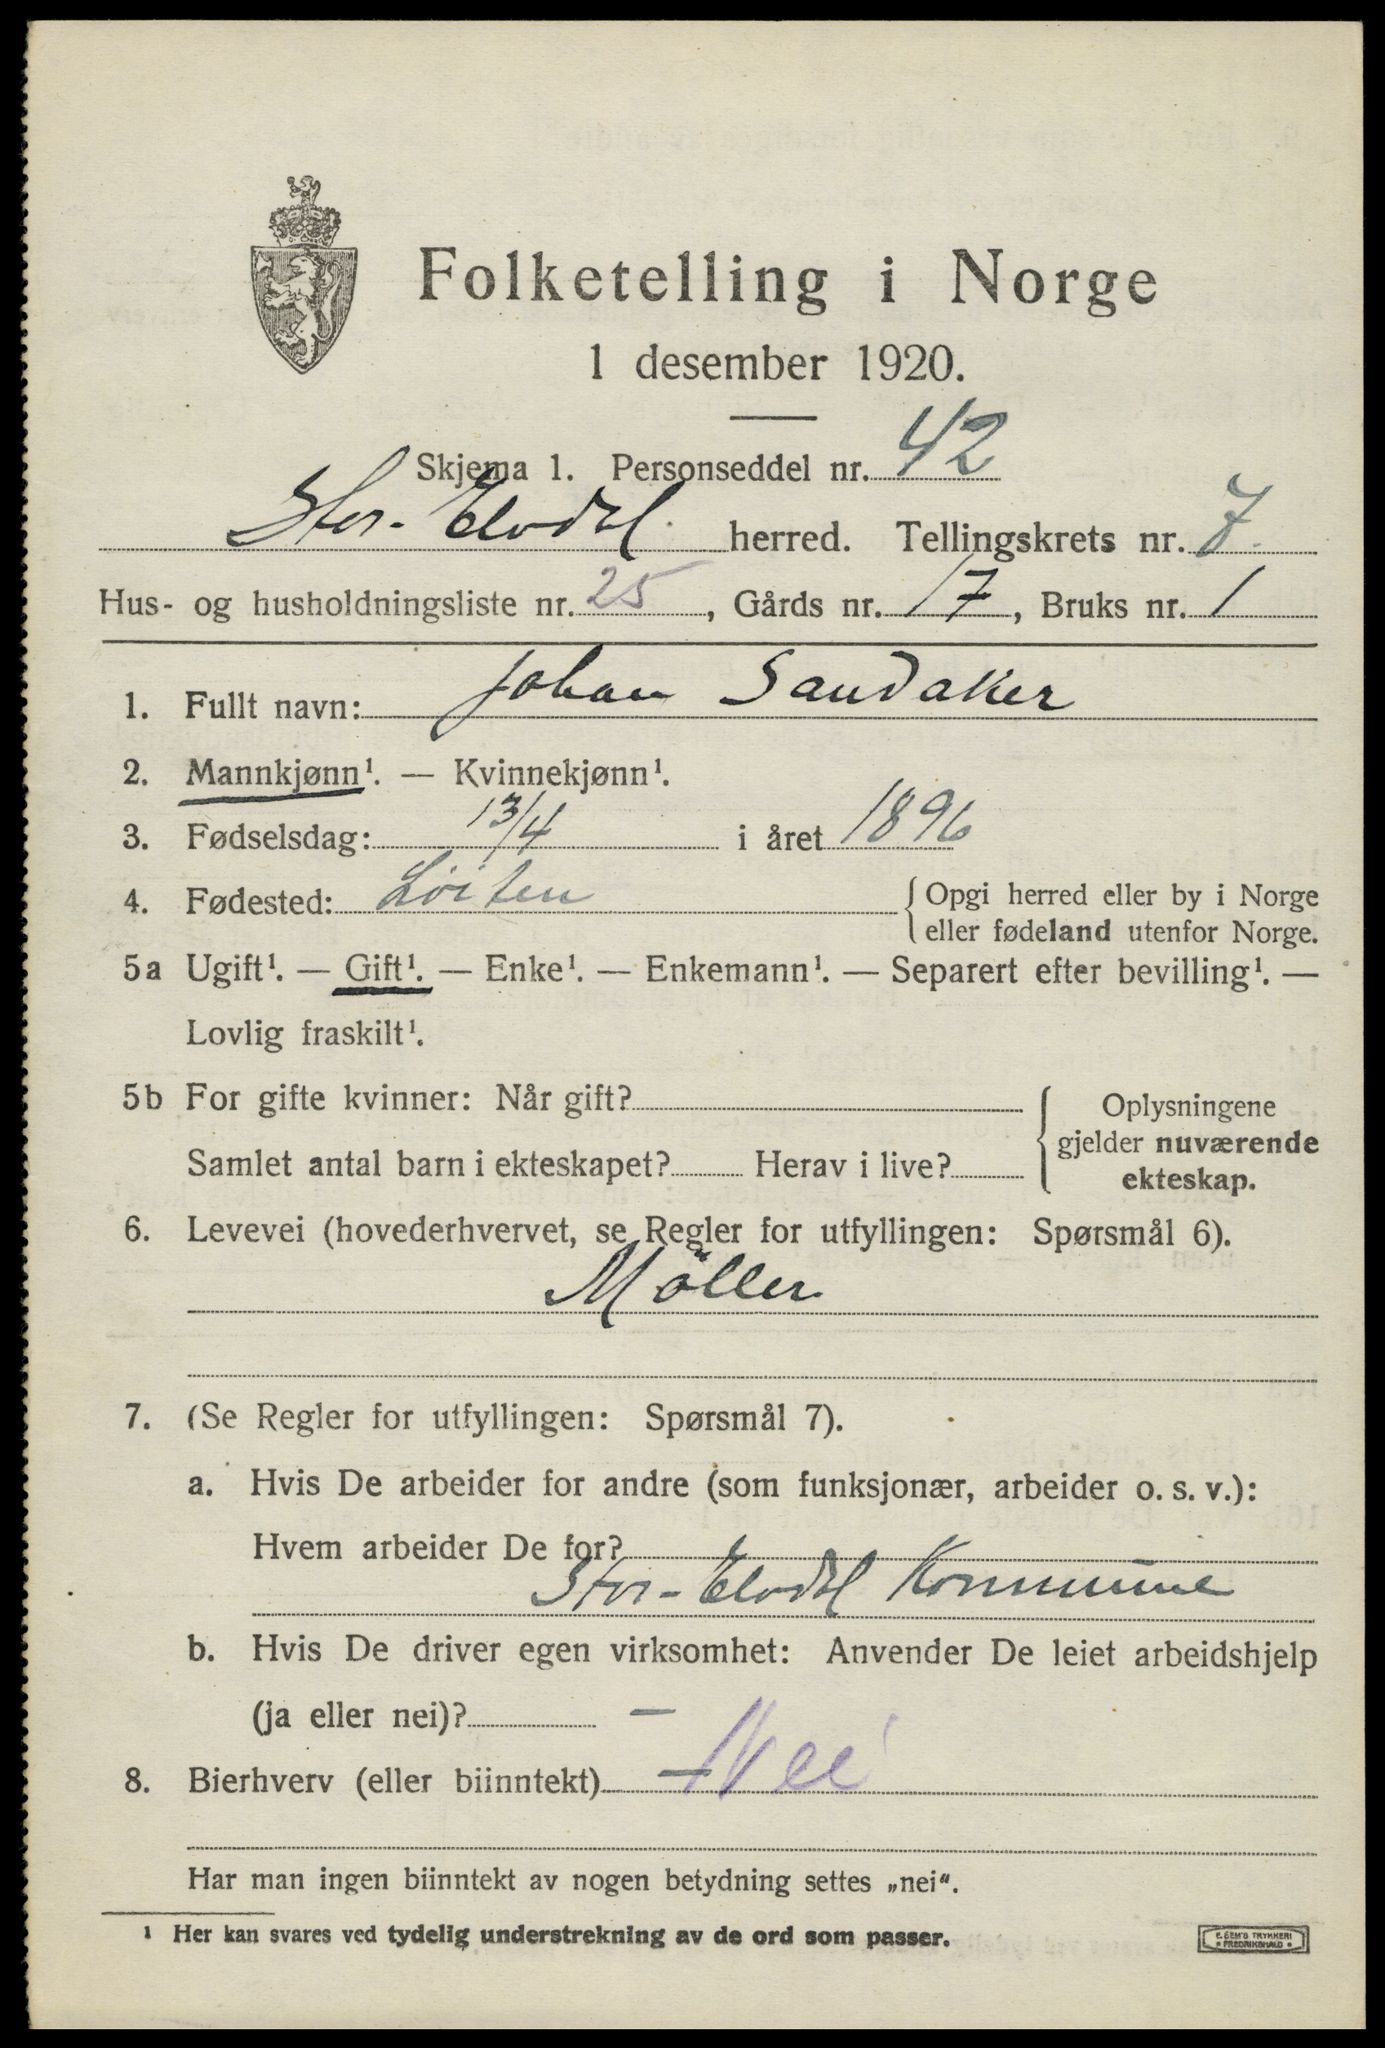 Folketelling i Norge
1 desember 1920.
Skjema 1. Personseddel nr. 42
Stor-Elvdal herred. Tellingskrets nr. 7.
Hus- og husholdningsliste nr. 25, Gårds nr. 17, Bruks nr. 1
1. Fullt navn: Johan Sandaker
2. Mannkjønn¹. — Kvinnekjønn¹.
3. Fødselsdag: 13/4 i året 1896
4. Fødested: Löiten { Opgi herred eller by i Norge
eller fødeland utenfor Norge.
5a Ugift¹. — Gift¹. — Enke¹. — Enkemann¹. — Separert efter bevilling¹. —
Lovlig fraskilt¹.
5b For gifte kvinner: Når gift?
Samlet antal barn i ekteskapet? Herav i live?
{ Oplysningene
gjelder nuværende
ekteskap.
6. Levevei (hovederhvervet, se Regler for utfyllingen: Spørsmål 6).
Möller
7. (Se Regler for utfyllingen: Spørsmål 7).
a. Hvis De arbeider for andre (som funksjonær, arbeider o. s. v.):
Hvem arbeider De for?
Stor-Elvdal Kommune
b. Hvis De driver egen virksomhet: Anvender De leiet arbeidshjelp
(ja eller nei)? —
8. Bierhverv (eller biinntekt) — Nei
Har man ingen biinntekt av nogen betydning settes „nei".
¹ Her kan svares ved tydelig understrekning av de ord som passer.
E. SEM'S TRYKKERI
• FREDRIKSHALD •